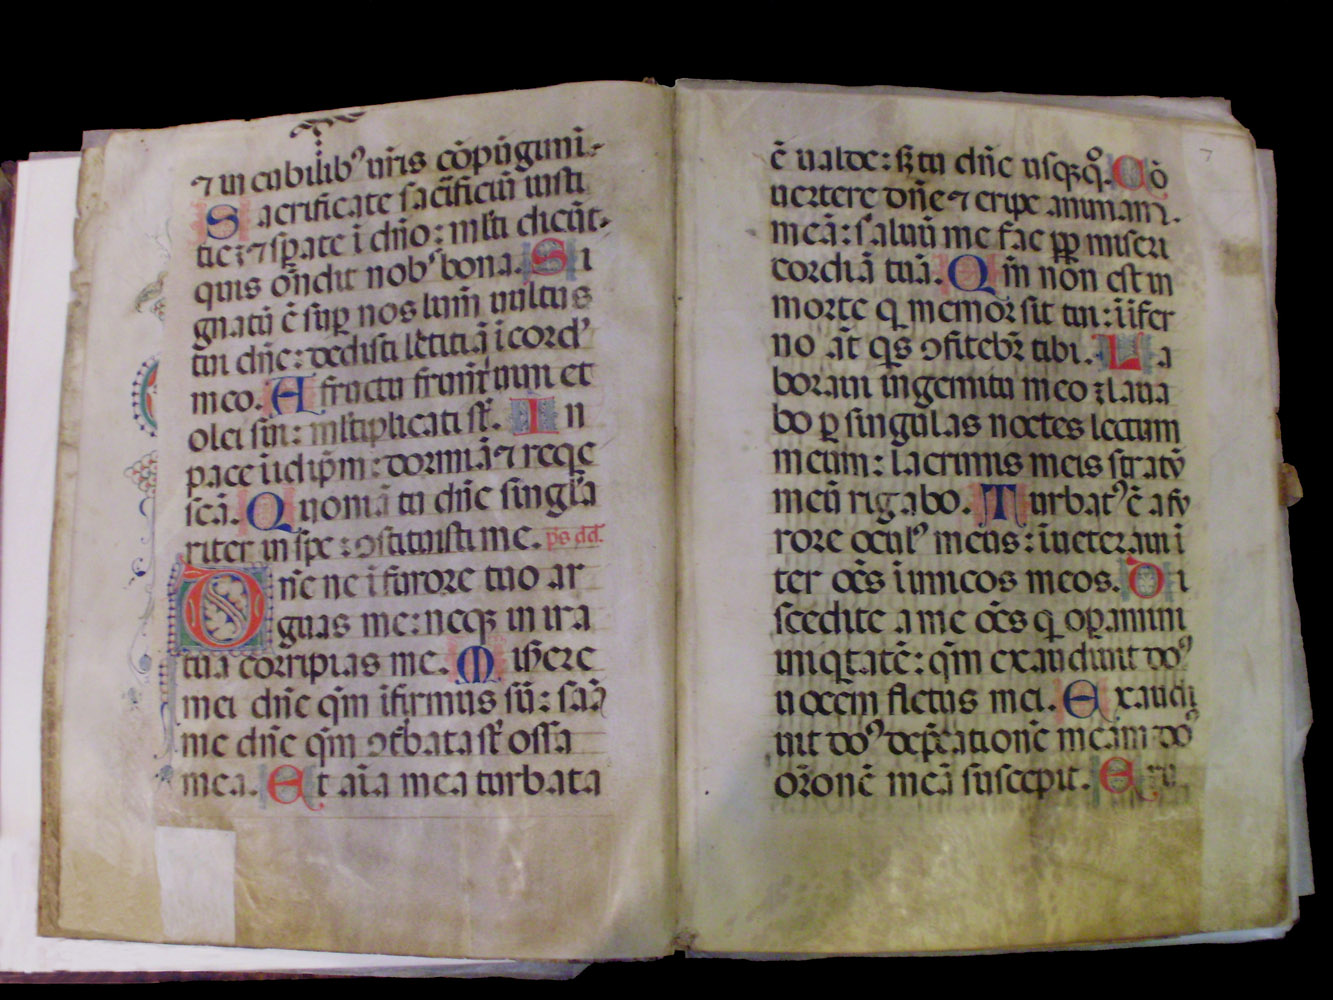 ⁊ in cubilibꝰ ur̄is cōpūgimī-
Sacrificate sac̄ificiū iusti
tie: ⁊ sꝑate ī dn̄o: ml̄ti dicūt.
quis ōndit nobˢ bona. Si
gnatū ē suꝑ nos lum̄ uultus
tui dn̄e: dedisti letitiā ī cordˀ
meo. A fructu frum̄ti uini et
olei sui: ml̄tiplicati st̄. In
pace ī idip̄m: dormiā ⁊ reqe
scā. Qnomā tu dn̄e singl̓a
riter in spe: ꝯstituisti me. p̄s dd̄.
Dn̄e ne ī furore tuo ar
guas me: neqꝫ in ira
tua corripias me. Misere
mei dn̄e qm̄ īfirmus sū: sāa
me dn̄e qm̄ ꝯt̓bata st̄ ossa
mea. Et aīa mea turbata
7
ē ualde: sꝫ tu dn̄e usqꝫqͦ. Cō
uertere dn̄e ⁊ eripe animam.
meā: saluū me fac ꝓꝑ miseri
cordiā tuā. Qm̄ non est in
morte q memor sit tui: ī īfer
no āt qs ꝯfitebr̄ tibi. La
boraui in gemitu meo: laua
bo ꝑ singulas noctes lectum
meum: lacrimis meis stratū
meū rigabo. Turbatꝰ ē a fu
rore oculꝰ meus: īueteraui ī
ter oēs īimicos meos. Di
scedite a me oēs q oꝑamini
iniqtatē: qm̄ exaudiuit doꝰ
uocem fletus mei. Exaudi
uit doꝰ dep̄cationē meam: doꝰ
or̄onē meā suscepit. Eru